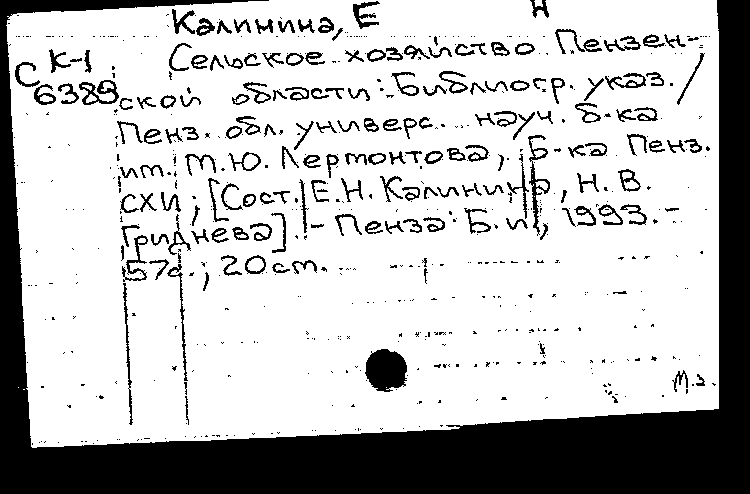 Калинина, Е Н
С К-1 Сельское хозяйство Пензен-
6389 ской области: Библиогр. указ. /
Пенз. обл. универс. науч. б-ка
им. М.Ю. Лермонтова, Б-ка Пенз.
СХИ; [Сост. Е.Н. Калинина, Н. В.
Гриднева]. - Пенза: Б.и., 1993. -
57с.; 20 см.